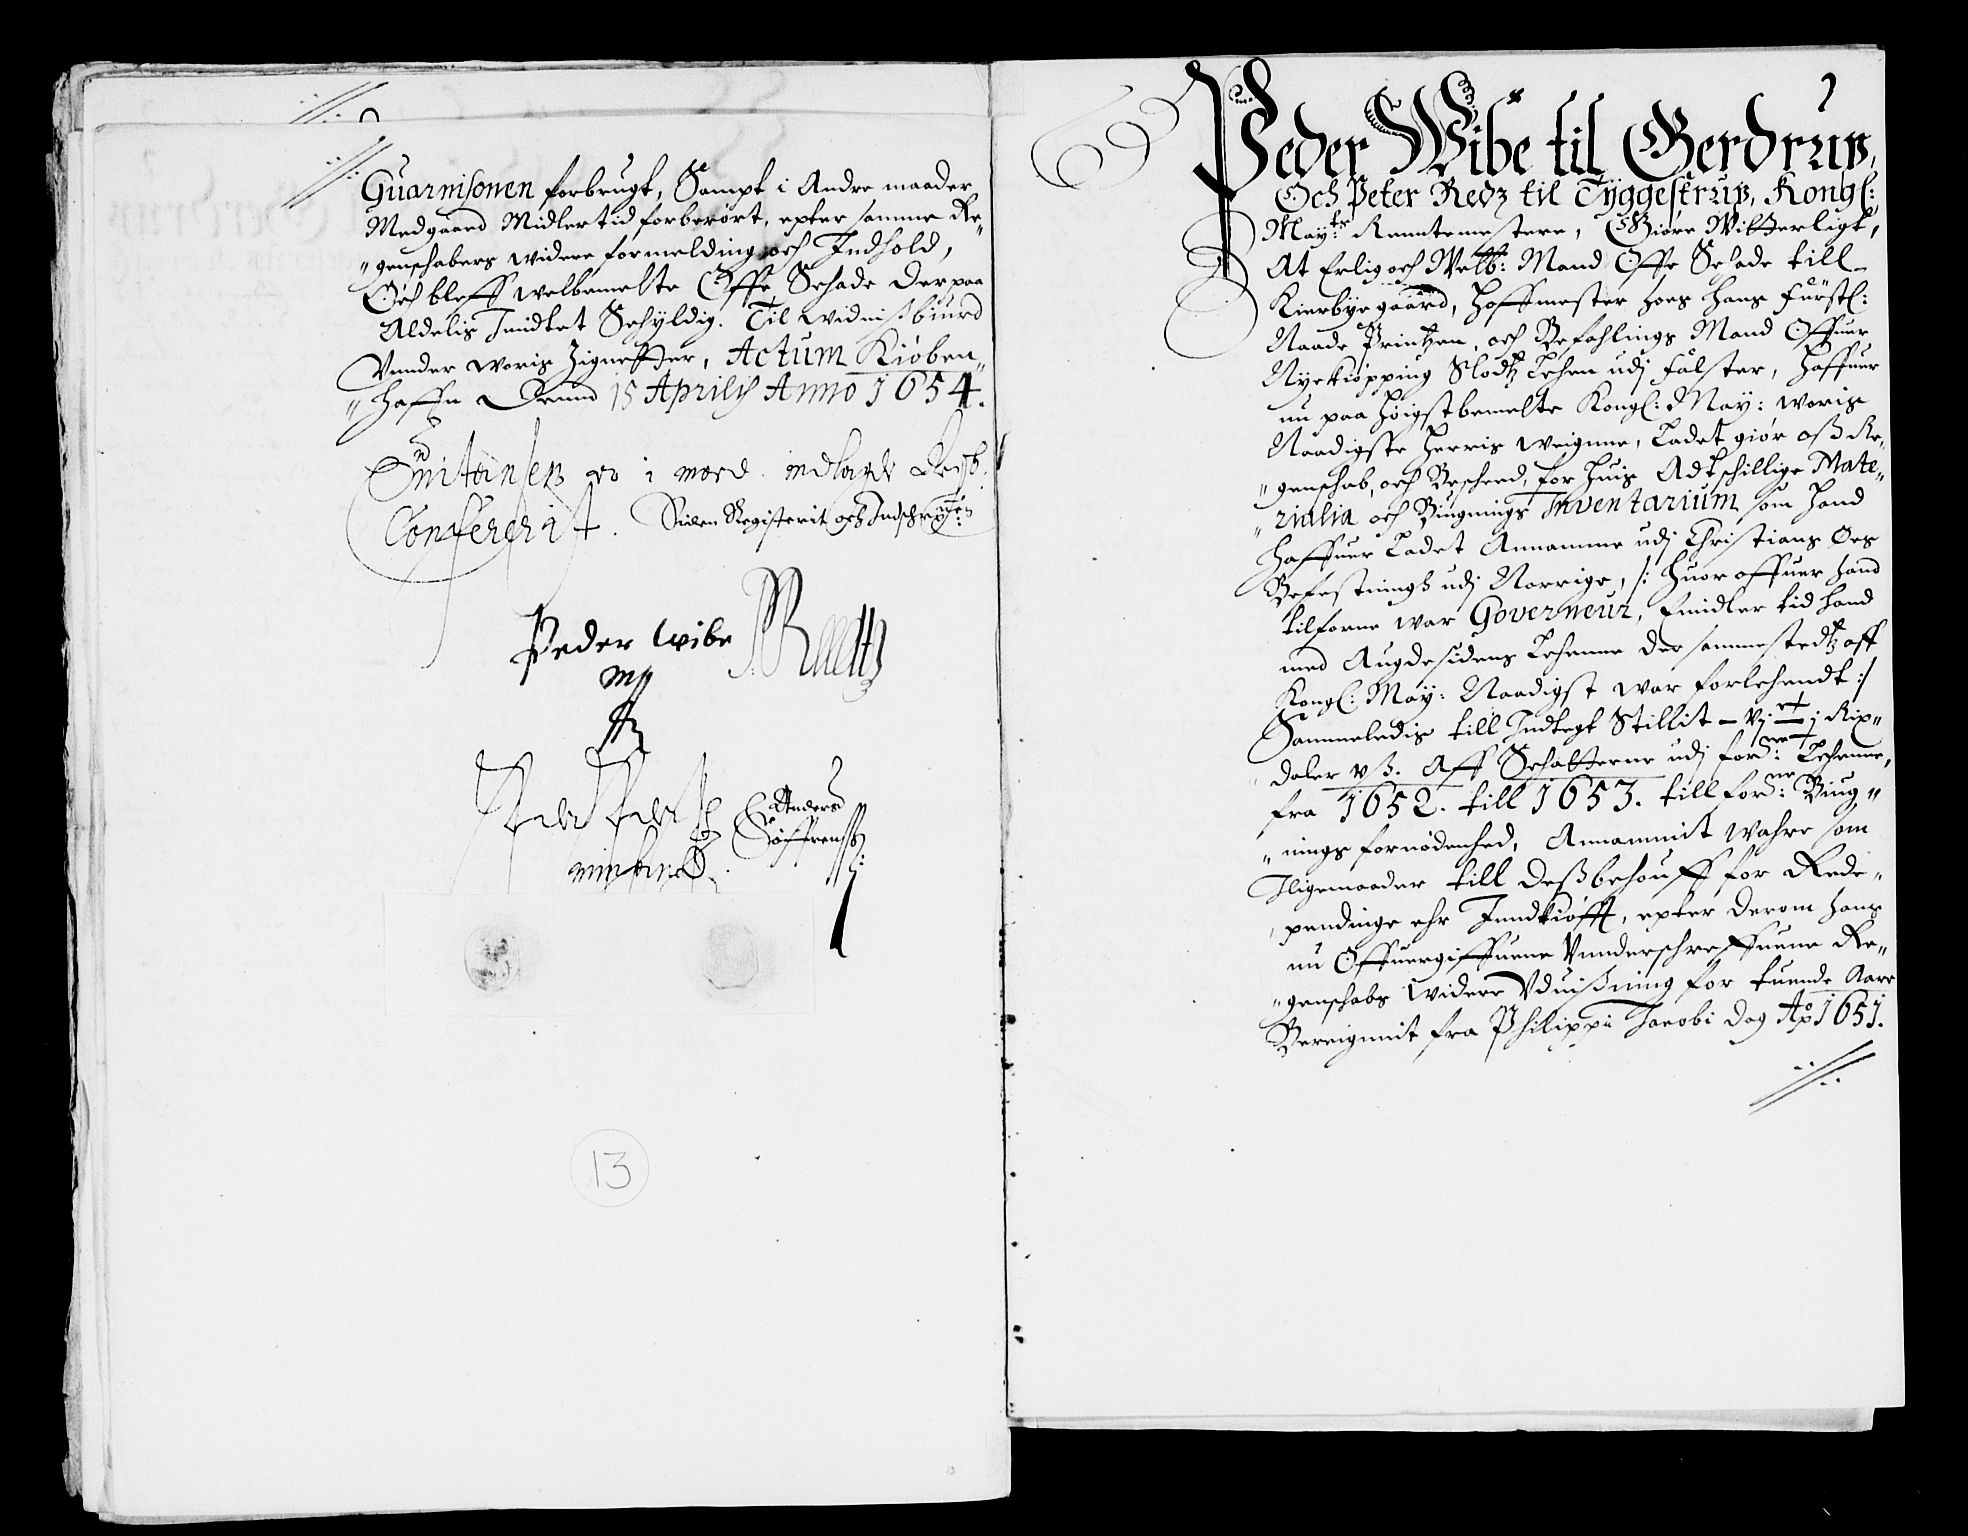 Guarnisonen forbrugt, Sampt i Andre maader
Medgaard Midlertid forberørt, epter samme Re„
„genschabers widere formelding och Indhold,
Och bleff welbemelte Offe Schade derpaa
Aldelis Inndtet Schyldig. Til widnißbiurd
Vnnder woris Zignetter, Actum Kiøben„
„haffn Dennd 15 Aprilis Anno 1654.
Quitansen
Conferert. Siden Registerit och Indschreffuen
Peder Wibe
mp
P: Reetz
Anders
Søffrensß:
13
Peder Wibe til Gerdrup,
Och Peter Redz til Tyggestrup, Kongl:
May:ts Renntemestere, Giøre Witterligt,
At Erlig och Welb: Mand Offe Schade till
Kierbyegaard, Hoffmester hoes hans Fürstl:
Naade Printzen, och Befahlings Mand Offuer
Nyekiøpping Slodtz Lehen udj Falster, Haffuer
nu paa Høigstbemelte Kongl: May: woris
Naadigste Herris weignne, Ladet giør oß Re„
„genschab, och Bescheed, for Huis Adtschillige Mate„
„rialia och Biugnings Inventarium som Hand
Haffuer Ladet Annamme udj Christians Øes
Befestningh udj Norrige, /: Huor offuer Hand
tilforne war Governeur, Emidler tid Hand
med Augdesidens Lehenne der sammestedtz aff
Kongl: May: Naadigst war forlehendt :/
Sammeledis till Indtegt Stillit – Vj j Rix„
daler v ß. Aff Schatterne udj ford:ne Lehenne,
fra 1652. till 1653. till ford:ne Biug„
„nings fornødenhed, Annammit Wahre som
Iligemaader till deßbehouff for Rede„
pendinge ehr Inndkiøfft, epter derom hans
nu Offuergiffuene Vnnderschreffuene Re„
„genschabs widere Vduißning for tuende Aars
Bereignnit fra Philippi Jacobi dag Ao 1651.